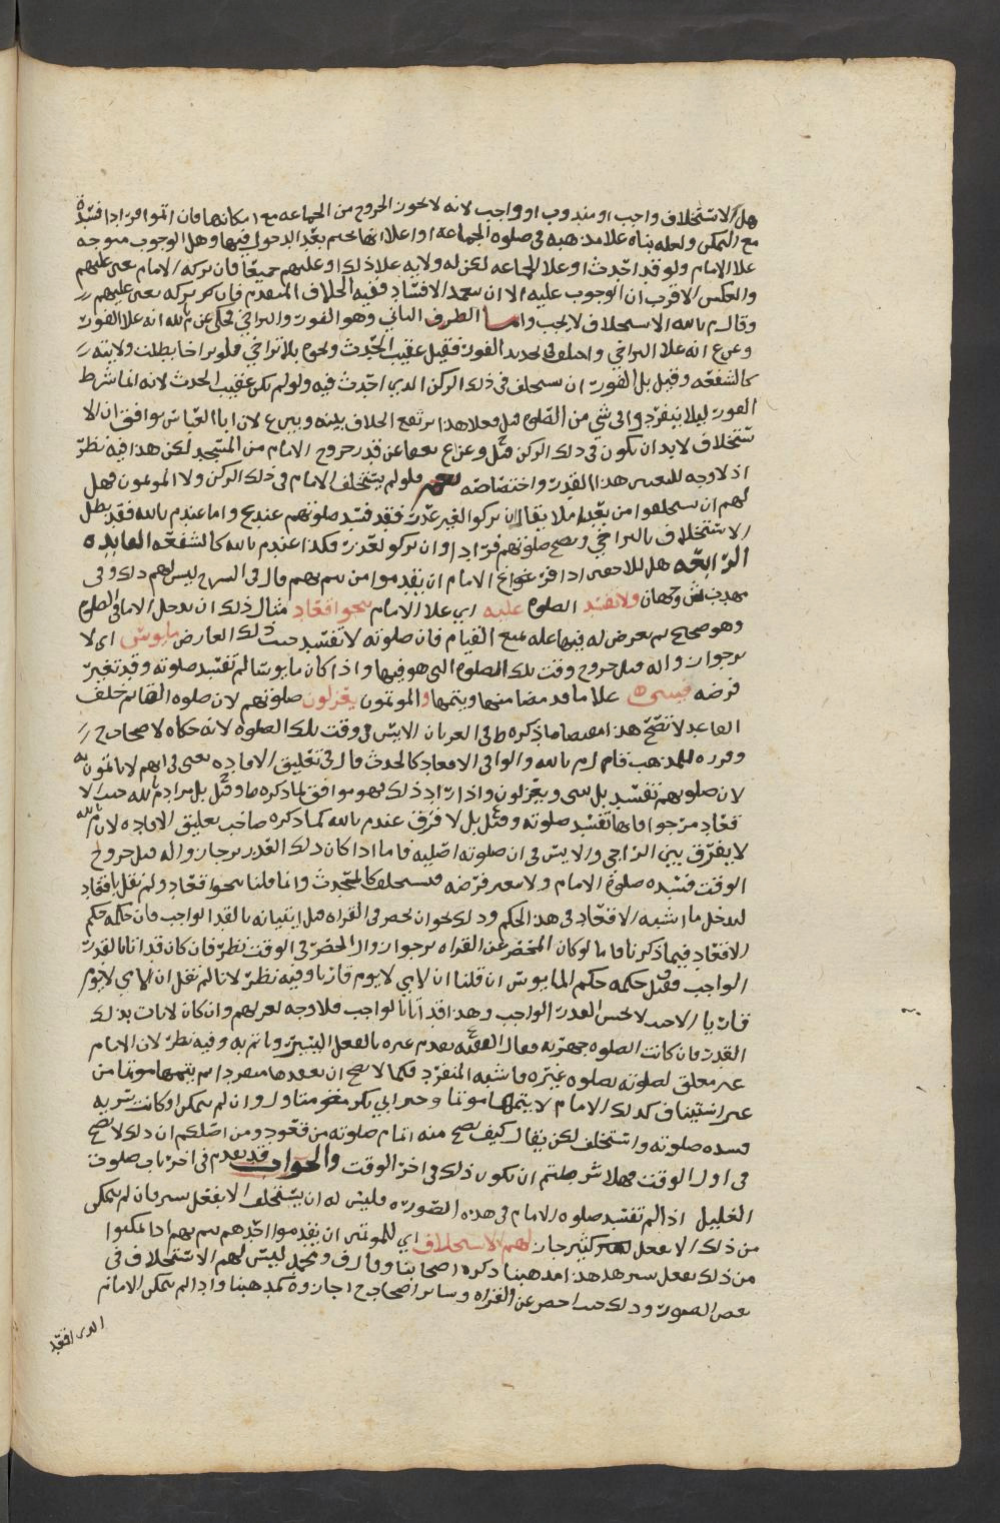 هل الاستخلاف واجب او مندوب او واجب لانه لا يجوز الخروج من الجماعه مع امكانها فان اتموا فرادا فسدة
مع التمكن ولعله بناه علا مذهبه في صلوه الجماعه او علا انها تحتم بعد الدخول فيها وهل الوجوب متوجه
علا الامام ولو قد احدث او علا الجماعه لكن له ولايه علا ذلك او عليهم جميعا فان تركه الامام تعين عليهم
والعكس الاقرب ان الوجوب عليه الا ان تعمد الافساد ففيه الخلاف المتقدم فان تركه تعين عليهم
وقال م بالله الاستخلاف لا يجب واما الطرف الثاني وهو الفور والتراخي فحكي عن م بالله انه علا الفور
وعن ع انه علا التراخي واختلف في تحديد الفور فقيل عقيب الحدث ولحوه بلا تراخي فلو تراخا بطلت ولايته
كالشفعه وقيل بل الفور ان يستخلف في ذلك الركن الذي احدث فيه ولو لم يكن عقيب الحدث لانه انما شرط
الفور ليلا ينفرد وافي شي من الصلوه قيل فعلا هذا يرتفع الخلاف بينه وبين ع لان ابا العباس يوافق ان الا
ستخلاف لا بد ان يكون في ذلك الركن قيل وعن ع يعفا عن قدر خروج الامام من المسجد لكن هذا فيه نظر
اذ لا وجه لتعيين هذا القدر واختصاصه نعم فلو لم يستخلف الامام في ذلك الركن ولا الموتمون فهل
لهم ان يستخلفوا من بعد املا يقال ان تركوا لغير عذر فقد فسد صلوتهم عند ع واما عند م بالله فقد بطل
الاستخلاف بالتراخي وتصح صلوتهم فرادا وان تركو لعذر فكذا عند م بالله كالشفعه الفايده
الرابعه هل للاحقين اذا فرغوا مع الامام ان يقدموا من يتم بهم قال في الشرح ليس لهم ذلك وفي
مهذب ش وجهان ولا تفسد الصلوه عليه اي علا الامام بنحو اقعاد مثال ذلك ان يدخل الامام في الصلوه
وهو صحيح ثم يعرض له فيها عله تمنع القيام فان صلوته لا تفسد حيث ذلك العارض مايوس اي لا
يرجوا زواله قبل خروج وقت تلك الصلوه التي هو فيها واذا كان مايوسا لم تفسد صلوته وقد تغير
فرضه فيبني علا ما قد مضا منها ويتمها والموتمون يعزلون صلوتهم لان صلوه القايم خلف
القاعد لا تصح هذا مقتضا ما ذكره ط في العريان الايس في وقت تلك الصلوه لانه حكاه لاصحاب ح
وقرره للمذهب فاما م بالله والوافي الاقعاد كالحدث قال في تعليق الافاده يعني في انهم لا ياتمون به
لان صلوتهم تفسد بل يبني ويعزلون واذا اراد ذلك فهو موافق لما ذكره ط وقيل بل مراد م بالله حيث الا
قعاد مرجوا فانها تفسد صلوته وقيل بل لا فرق عند م بالله كما ذكره صاحب تعليق الافاده لان م بالله
لا يفرق بين الراجي والايس في ان صلوته اصليه فاما اذا كان ذلك القدر يرجا زواله قبل خروج
الوقت فسده صلوة الامام ولا يتغير فرضه فيستخلف كالمحدث وانما قلنا بنحو اقعاد ولم نقل باقعاد
ليدخل ما اشبه الاقعاد في هذا الحكم وذلك نحو ان يحصر في القراه قبل اتيانه بالقدر الواجب فان حكمه حكم
الاقعاد فيما ذكرنا فاما لو كان المحصر عن القراه يرجوا زوال الحصر في الوقت نظر فان كان قد اتا بالقدر
الواجب فقيل حكمه حكم المايوس ان قلنا ان الامي لا يوم قاريا وفيه نظر لانا لم نقل ان الامي لا يوم
قاريا الا حيث لا يحسن القدر الواجب وهذا قد اتا بالواجب فلا وجه لعزلهم وان كان لم يات بذلك
القدر فان كانت الصلوه جهريه فقال الفقيه يقدم غيره بالفعل اليسير وياتم به وفيه نظر لان الامام
غير معلق لصلوته بصلوه غيره فاشبه المنفرد فكما لا يصح ان يعقدها منفردا ثم يتمها موتما من
غير استيناف كذلك الامام لا يتمها موتما وخبر ابي بكر مغمور متاول وان لم يمكن او كانت سريه
فسده صلوته واستخلف لكن يقال كيف يصح منه اتمام صلوته من قعود ومن اصلكم ان ذلك لا يصح
في اول الوقت فهلا شرطتم ان يكون ذلك في اخر الوقت والجواب قد تقدم في اخر باب صلوة
العليل اذا لم تفسد صلوه الامام في هذه الصوره فليس له ان يستخلف الا بفعل يسير فان لم يمكن
من ذلك الا بفعل كثير جاز لهم الاستخلاف اي للموتمين ان يقدموا احدهم يتم بهم اذا تمكنوا
من ذلك بفعل يسير هذا مذهبنا ذكره اصحابنا وقال ف ومحمد ليس لهم الاستخلاف في
بعض الصور وذلك حيث احصر عن القراه وساير اصحاب ح اجازوه كمذهبنا واذا لم يمكن الامام
الذي اقعد